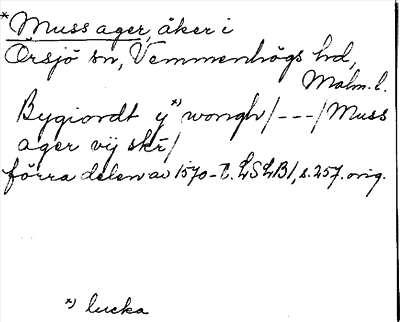 *Muss ager, åker i
Örsjö sn, Vemmenhögs hd,
Malm. l.
Bygiordt y *) wongh/---/Muss
ager vij skr/
förra delen av 1570-t. LSLB1, s. 257. orig.
*) lucka